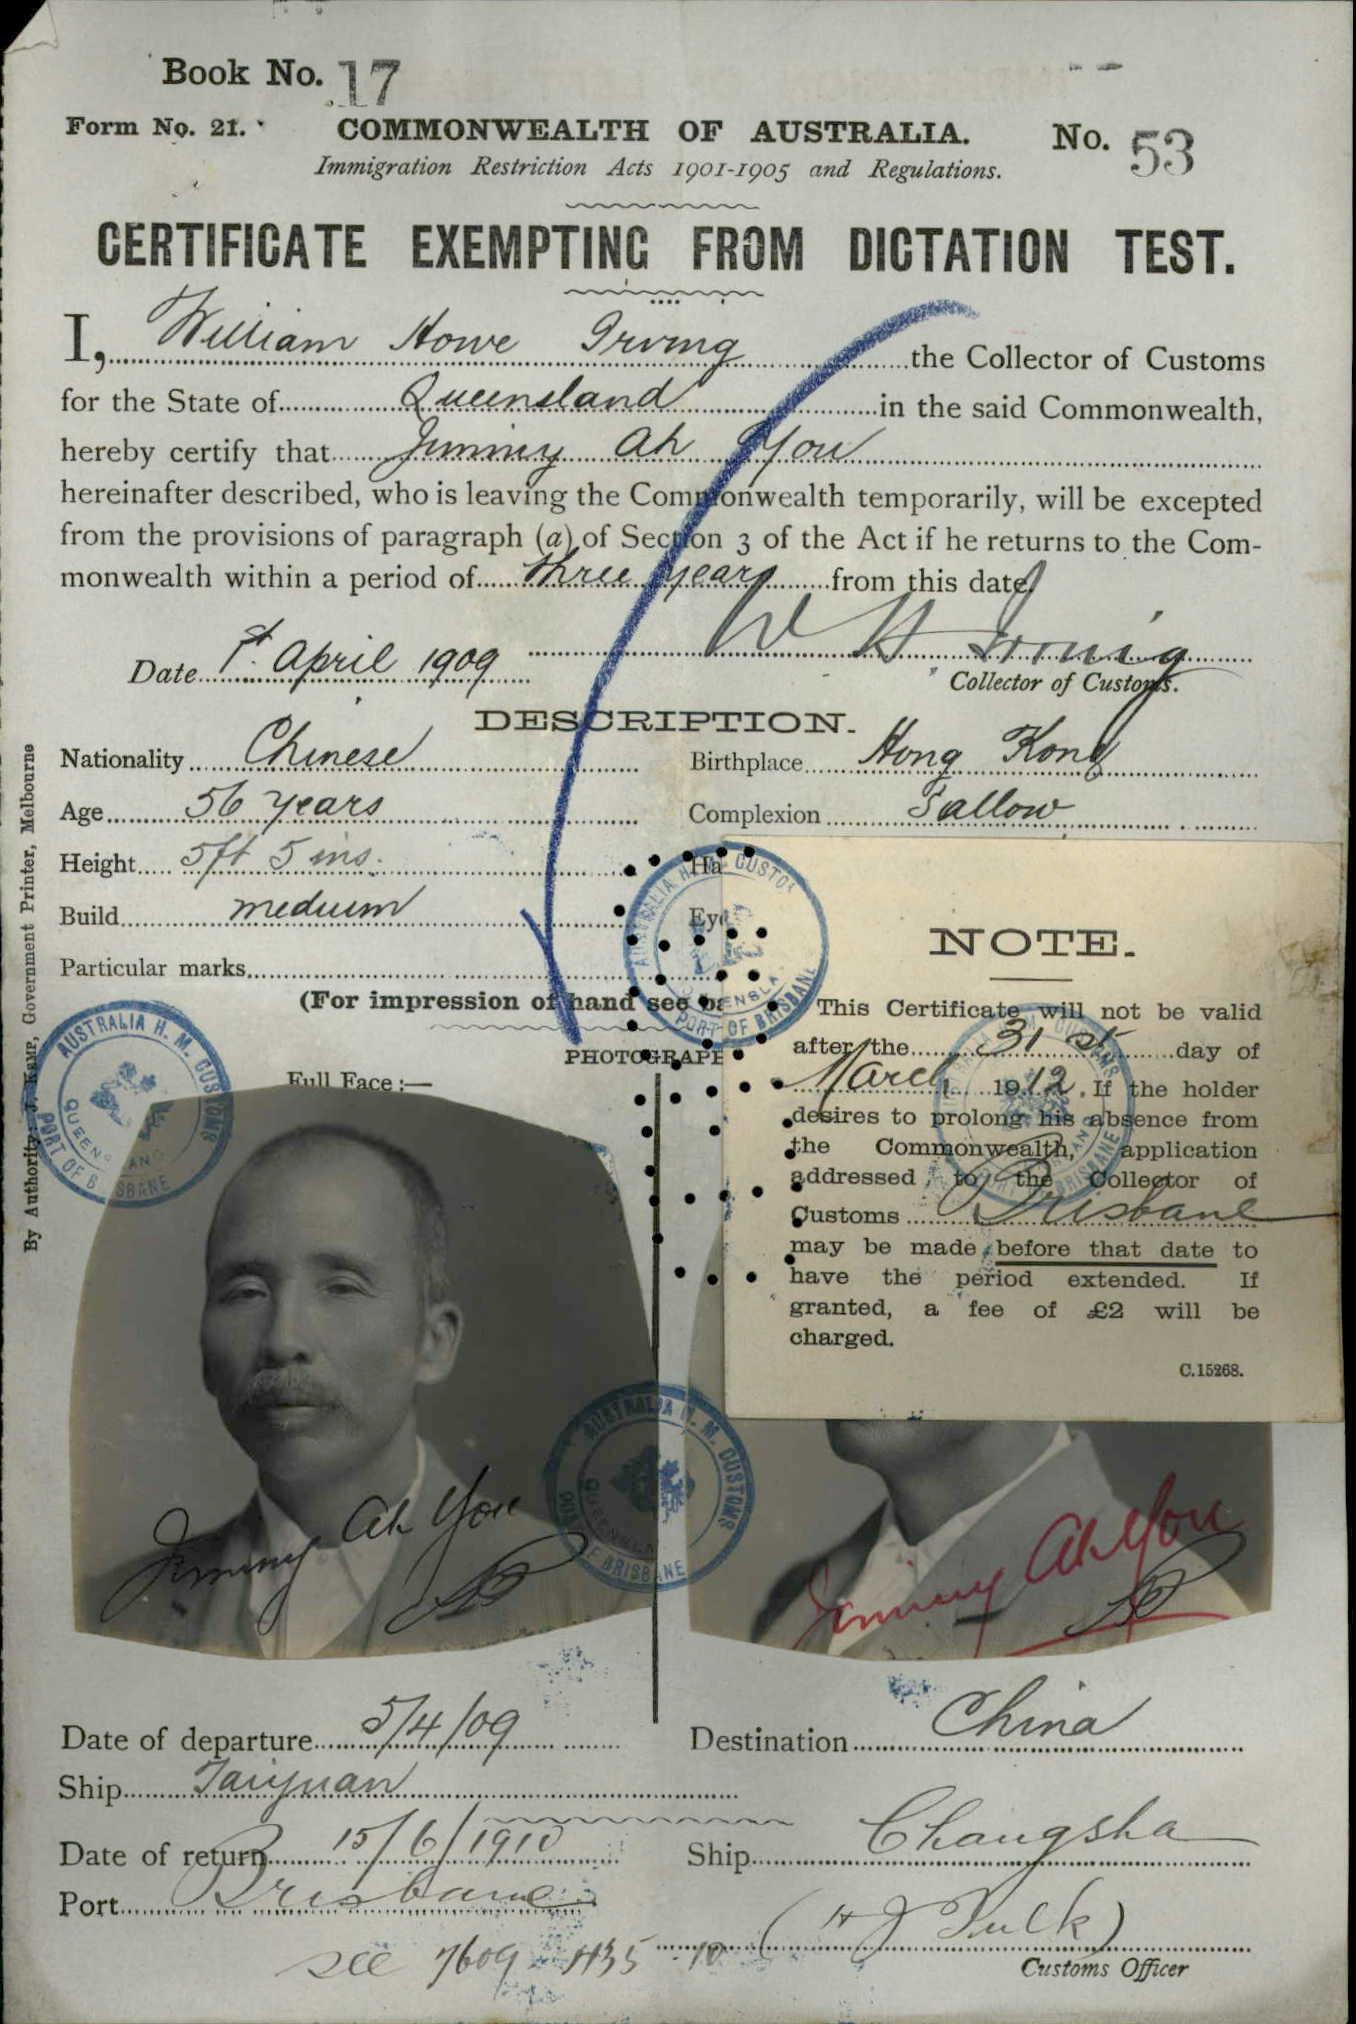 Book No. 17
Form No. 21. COMMONWEALTH OF AUSTRALIA. No. 53
Immigration Restriction Acts 1901-1905 and Regulations.
CERTIFICATE EXEMPTING FROM DICTATION TEST.
I, William Howe Irving the Collector of Customs
for the State of Queensland in the said Commonwealth,
hereby certify that Jimmy Ah You
hereinafter described, who is leaving the Commonwealth temporarily, will be excepted
from the provisions of paragraph (a) of Section 3 of the Act if he returns to the Com-
monwealth within a period of three years from this date.
W H Irving
Date 1st. April 1909
Collector of Customs.
DESCRIPTION.
Nationality Chinese Birthplace Hong Kong
Age 56 years Complexion Sallow
Height 5ft 5 ins. Ha
Build medium Eye
Particular marks
(For impression of hand see ba
PHOTOGRAPH
Full Face :—
By Authority: J. Kemp, Government Printer, Melbourne
AUSTRALIA H. M. CUSTOMS
QUEENSLAND
PORT OF BRISBANE
AUSTRALIA H. M. CUSTOMS
QUEENSLAND
PORT OF BRISBANE
NOTE.
This Certificate will not be valid
after the 31st day of
March 1912. If the holder
desires to prolong his absence from
the Commonwealth, application
addressed to the Collector of
Customs Brisbane
may be made before that date to
have the period extended. If
granted, a fee of £2 will be
charged.
C.15268.
AUSTRALIA H. M. CUSTOMS
PORT OF BRISBANE
AUSTRALIA H. M. CUSTOMS
QUEENSLAND
PORT OF BRISBANE
Jimmy Ah You
Jimmy Ah You
Date of departure 5/4/09 Destination China
Ship Taiyuan
Date of return 15/6/1910 Ship Changsha
Port Brisbane
(H J Tulk)
see 7609 H35 10
Customs Officer